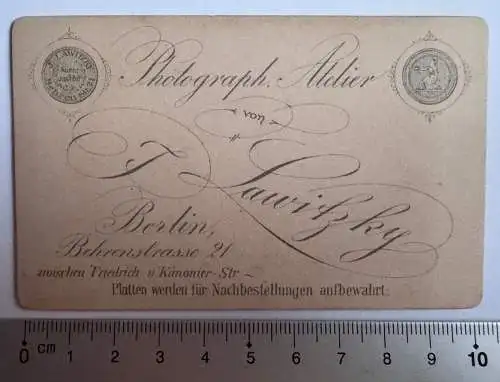 F. LAWITZKY
BEHREN STR. 21
Photograph. Atelier
von
F. Lawitzky
Berlin,
Behrenstrasse 21
zwischen Friedrich u Kanonier-Str
Platten werden für Nachbestellungen aufbewahrt.
0 cm 1 2 3 4 5 6 7 8 9 10